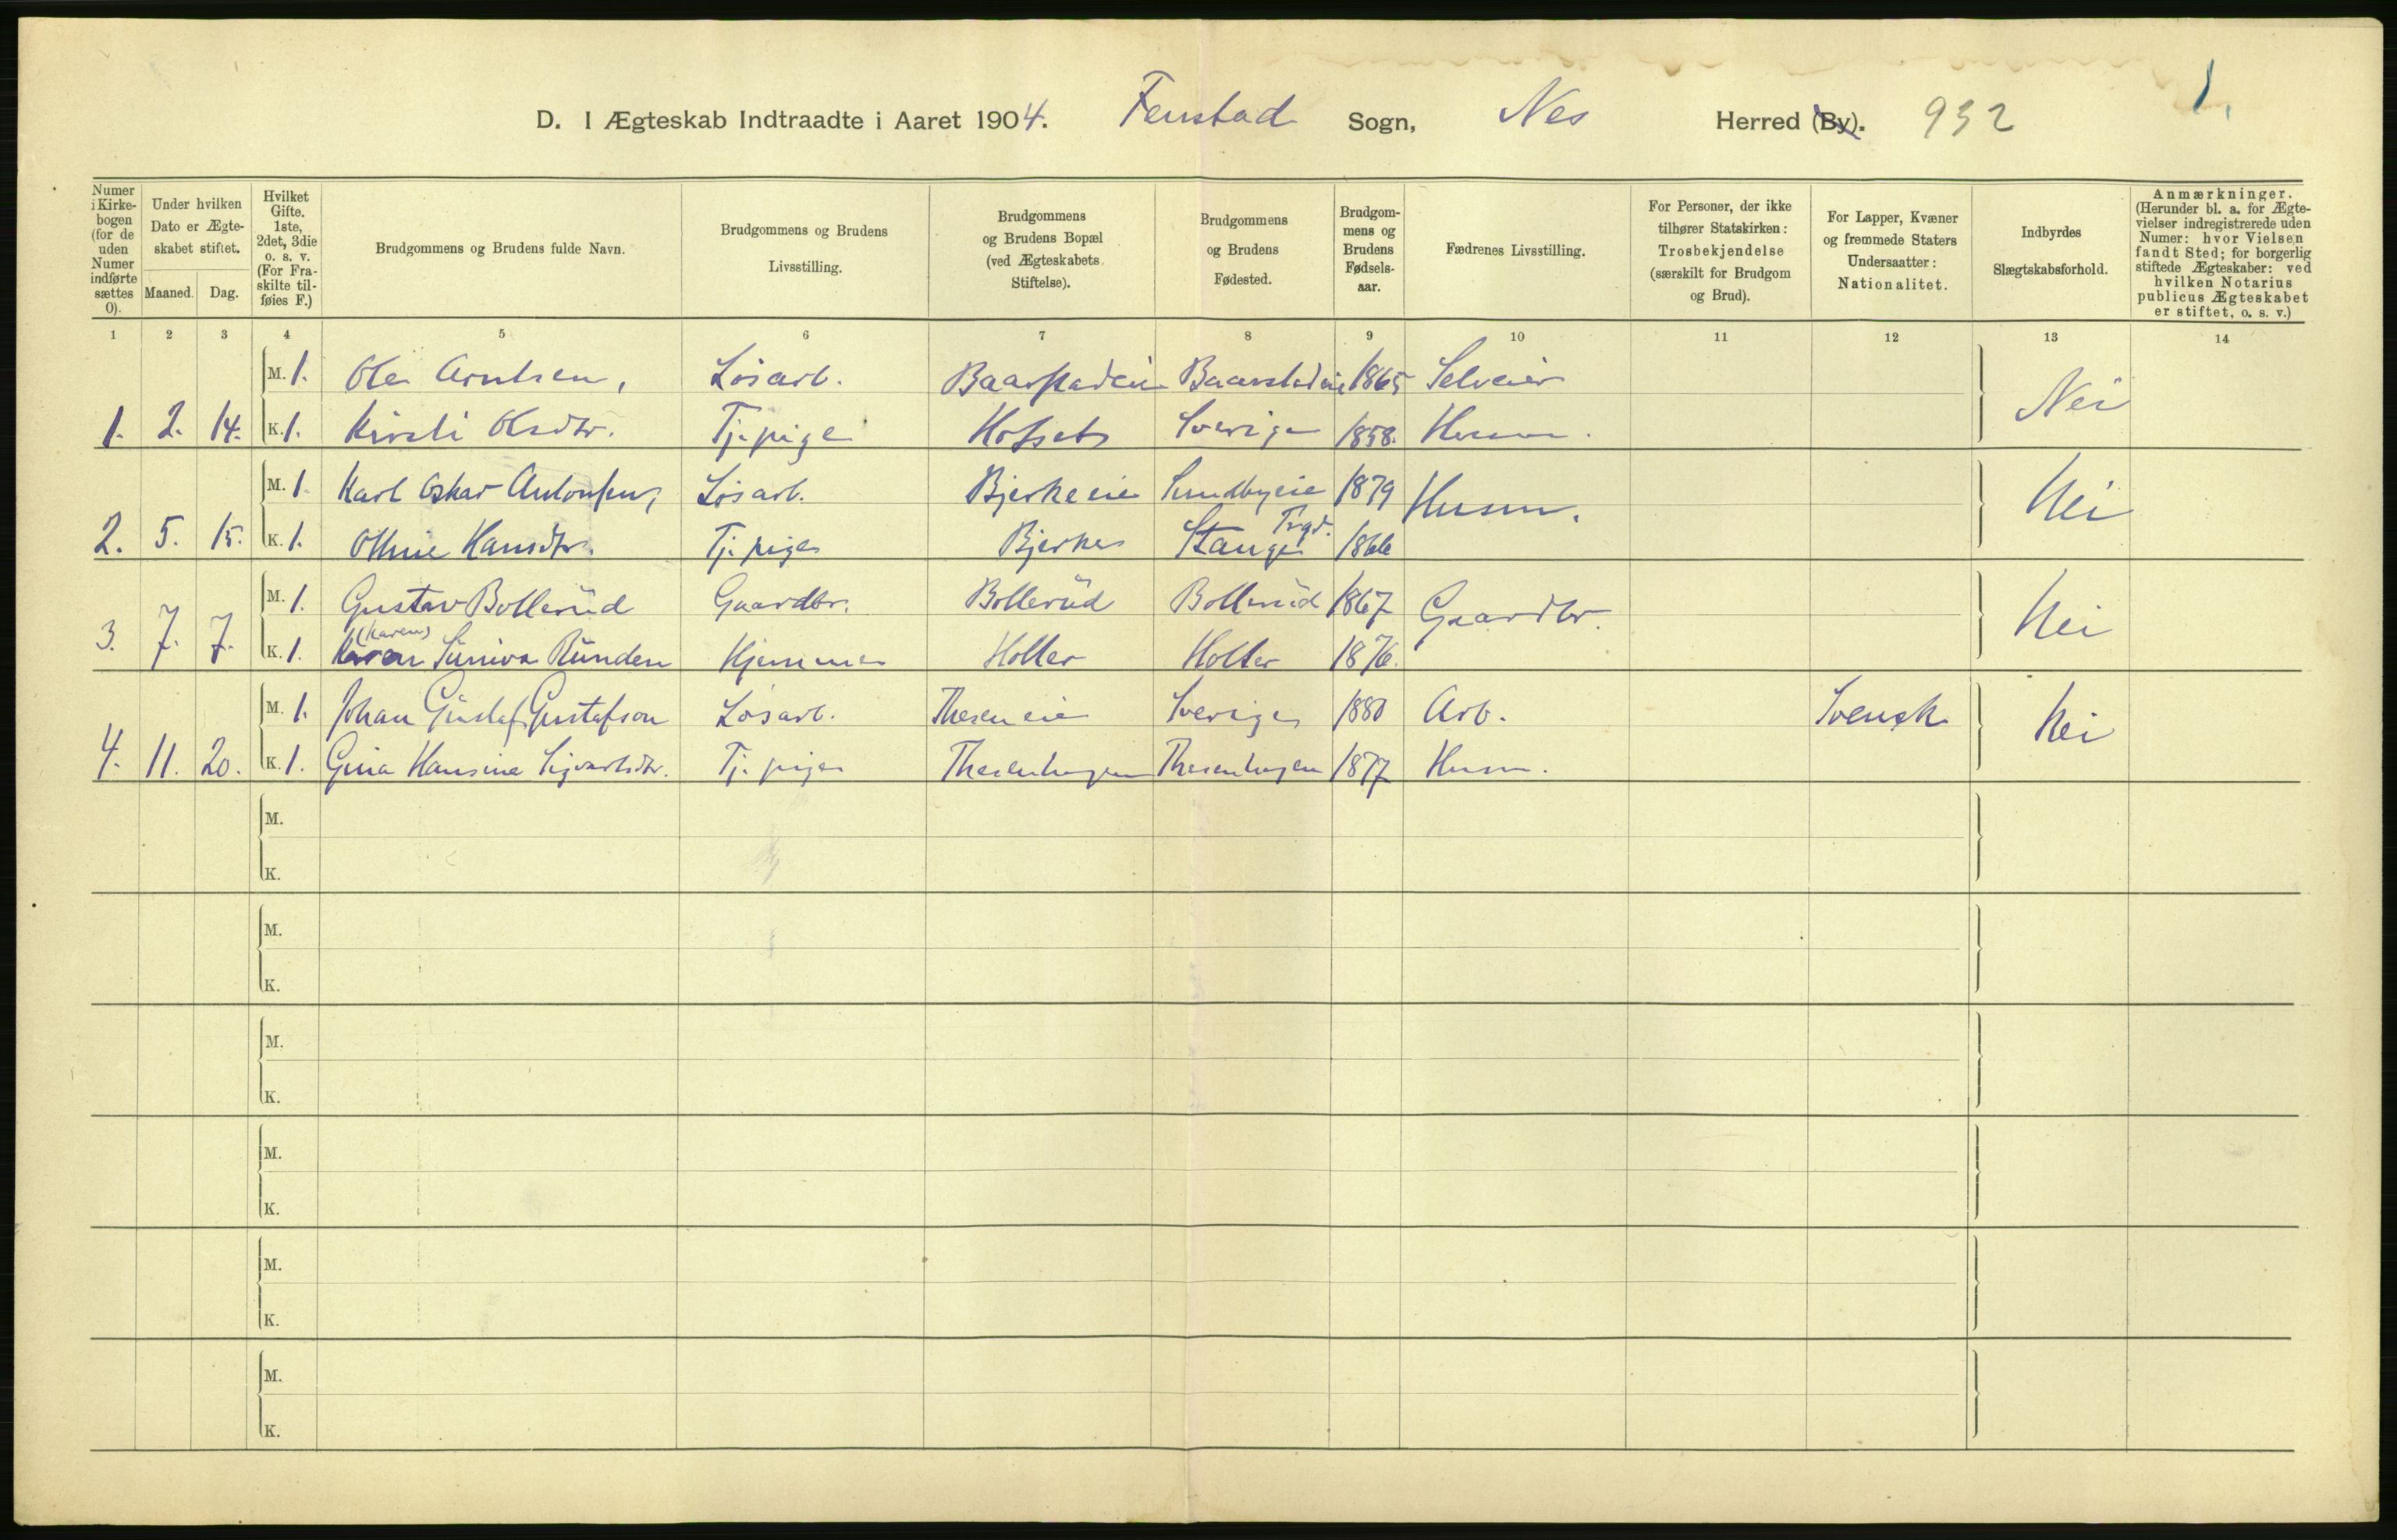 1.
D. I Ægteskab Indtraadte i Aaret 1904. Fenstad Sogn, Nes Herred (By). 932
Numer i Kirkebogen (for de uden Numer indførte sættes 0).
Under hvilken Dato er Ægteskabet stiftet.
Maaned. Dag.
Hvilket Gifte. 1ste, 2det, 3die o. s. v. (For Fraskilte tilføies F.)
Brudgommens og Brudens fulde Navn.
Brudgommens og Brudens Livsstilling.
Brudgommens og Brudens Bopæl (ved Ægteskabets Stiftelse).
Brudgommens og Brudens Fødested.
Brudgommens og Brudens Fødselsaar.
Fædrenes Livsstilling.
For Personer, der ikke tilhører Statskirken: Trosbekjendelse (særskilt for Brudgom og Brud).
For Lapper, Kvæner og fremmede Staters Undersaatter: Nationalitet.
Indbyrdes Slægtskabsforhold.
Anmærkninger. (Herunder bl. a. for Ægtevielser indregistrerede uden Numer: hvor Vielsen fandt Sted; for borgerlig stiftede Ægteskaber: ved hvilken Notarius publicus Ægteskabet er stiftet, o. s. v.)
1 2 3 4 5 6 7 8 9 10 11 12 13 14
M. 1. Ole Arntsen, Løsarb. Baarstadeie Baarstadeie 1865 Selveier
1. 2. 14. K. 1. Kirsti Olsdtr. Tj. pige Hofset Sverige 1858. Husm. Nei
M. 1. Karl Oskar Antonsen, Løsarb. Bjerkeeie Sundbyeie 1879 Husm.
2. 5. 15. K. 1. Othine Hansdtr. Tj. pige Bjerke Stange Prgd. 1866 Nei
M. 1. Gustav Bollerud Gaardbr. Bollerud Bollerud 1867 Gaardbr.
3. 7. 7. K. 1. Karen (Karen) Suniva Runden Hjemme Holter Holter 1876. Nei
M. 1. Johan Gustaf Gustafson Løsarb. Theseneie Sverige 1880 Arb. Svensk
4. 11. 20. K. 1. Gina Hansine Sigvartsdtr. Tj. pige Thesenhagen Thesenhagen 1877 Husm. Nei
M.
K.
M.
K.
M.
K.
M.
K.
M.
K.
M.
K.